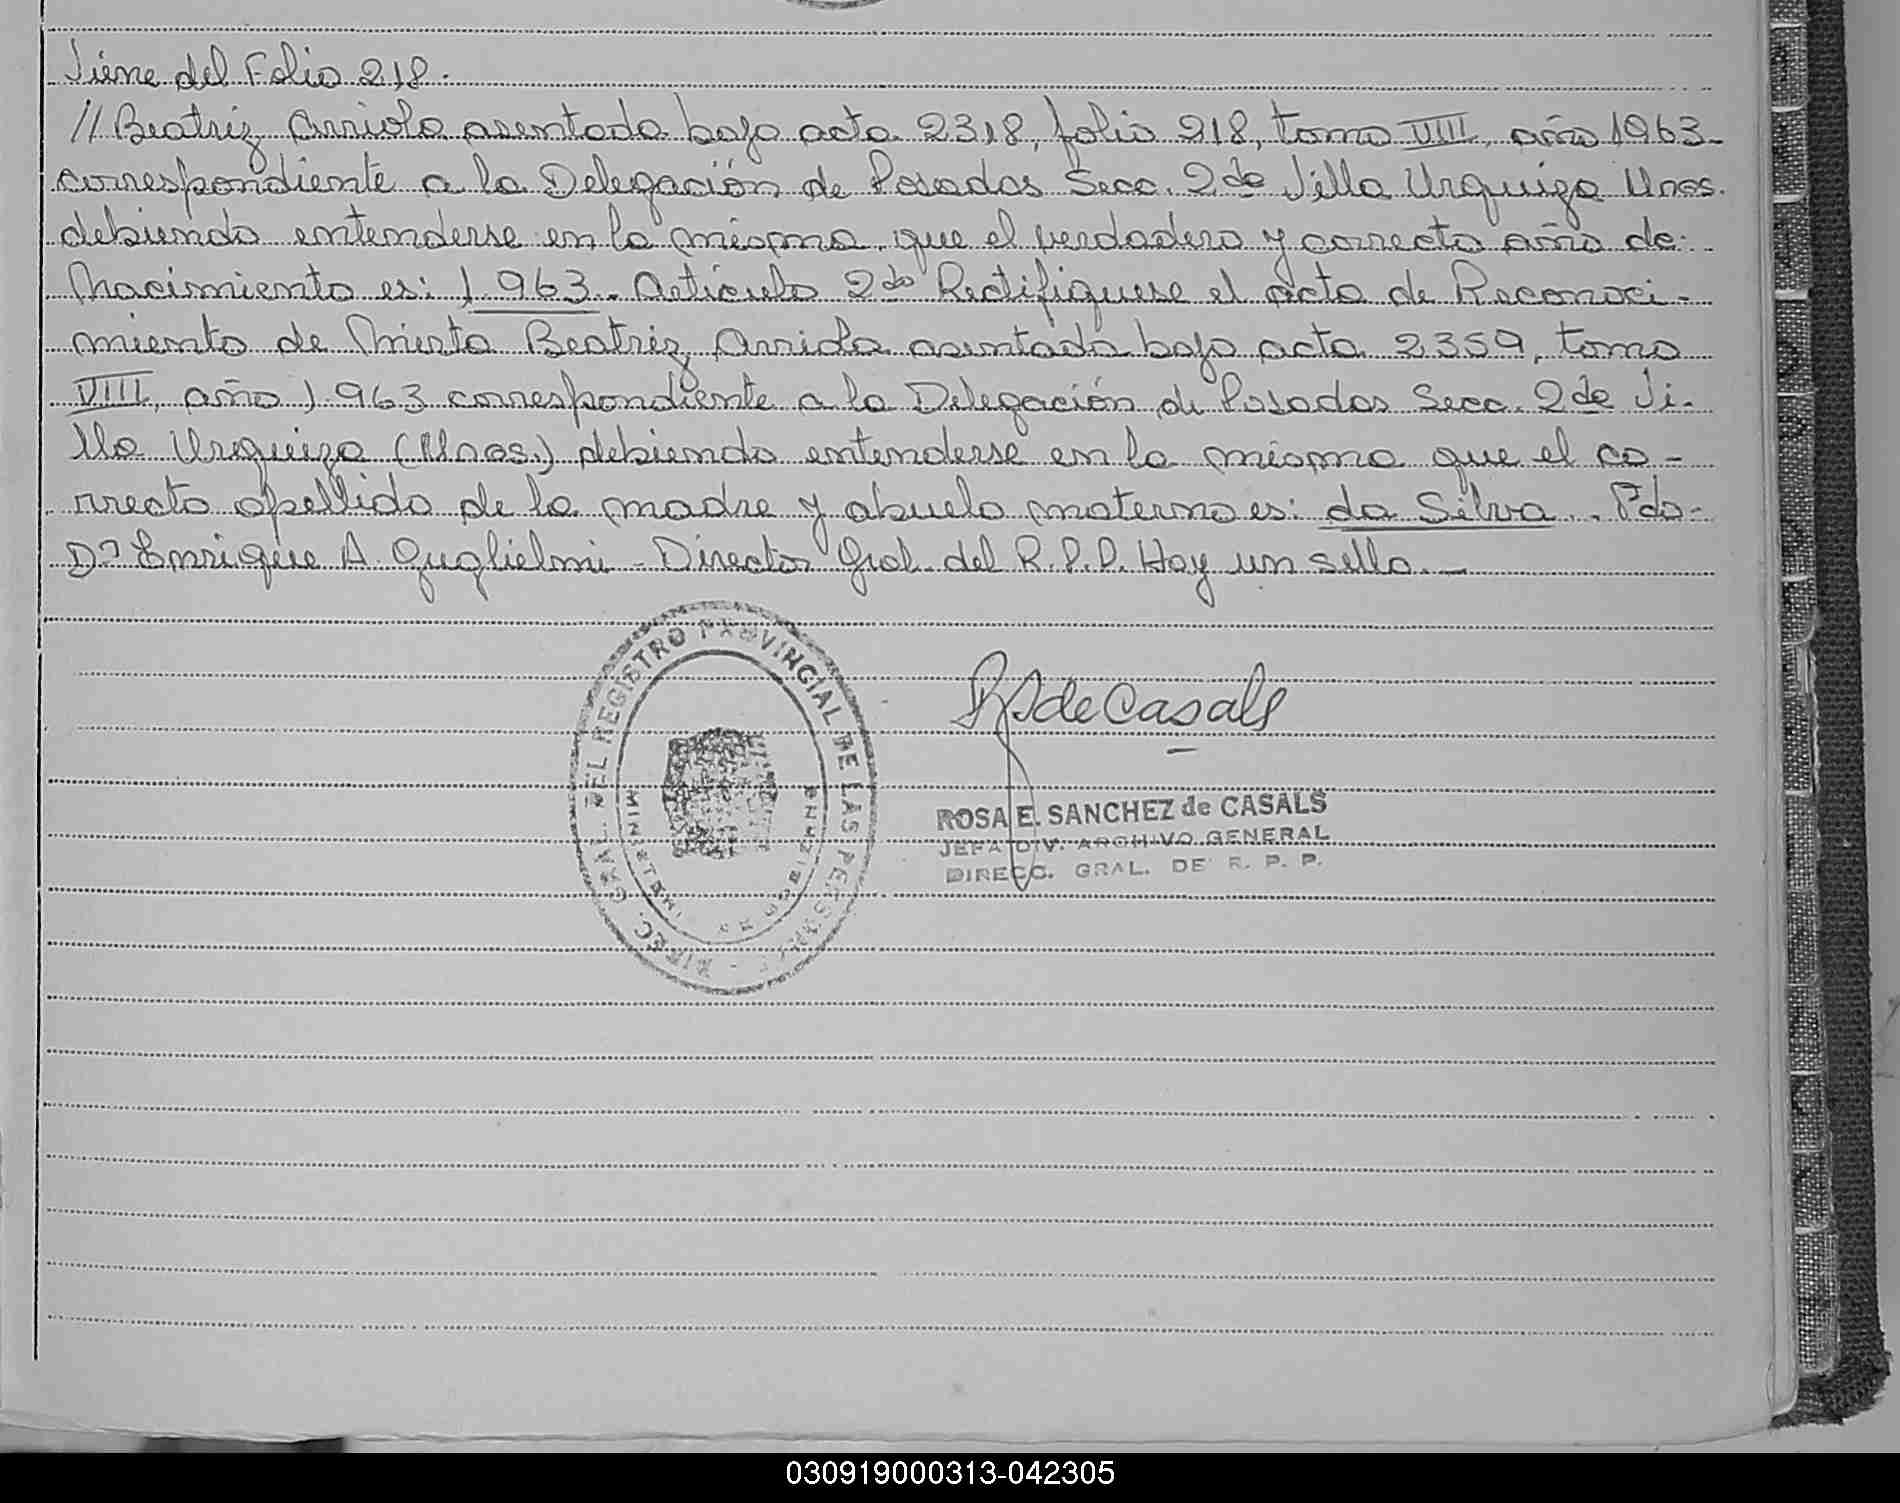 Viene del Folio 218.
// Beatriz Arriola asentada bajo acta 2318, folio 218, tomo VIII, año 1963-
correspondiente a la Delegación de Posadas Secc. 2da Villa Urquiza Mnes.
debiendo entenderse en la misma que el verdadero y correcto año de
Nacimiento es: 1.963. Artículo 2do Rectifíquese el acta de Reconoci-
miento de Mirta Beatriz Arriola asentada bajo acta 2359, tomo
VIII, año 1.963 correspondiente a la Delegación de Posadas Secc. 2da Vi-
lla Urquiza (Mnes.) debiendo entenderse en la misma que el co-
rrecto apellido de la madre y abuelo materno es: da Silva. Fdo-
Dn Enrique A. Guglielmi - Director Gral. del R.P.P. Hay un sello.-
DIREC. GRAL. DEL REGISTRO PROVINCIAL DE LAS PERSONAS
de Casals
ROSA E. SANCHEZ de CASALS
JEFA DIV. ARCHIVO GENERAL
DIRECC. GRAL. DE R. P. P.
030919000313-042305